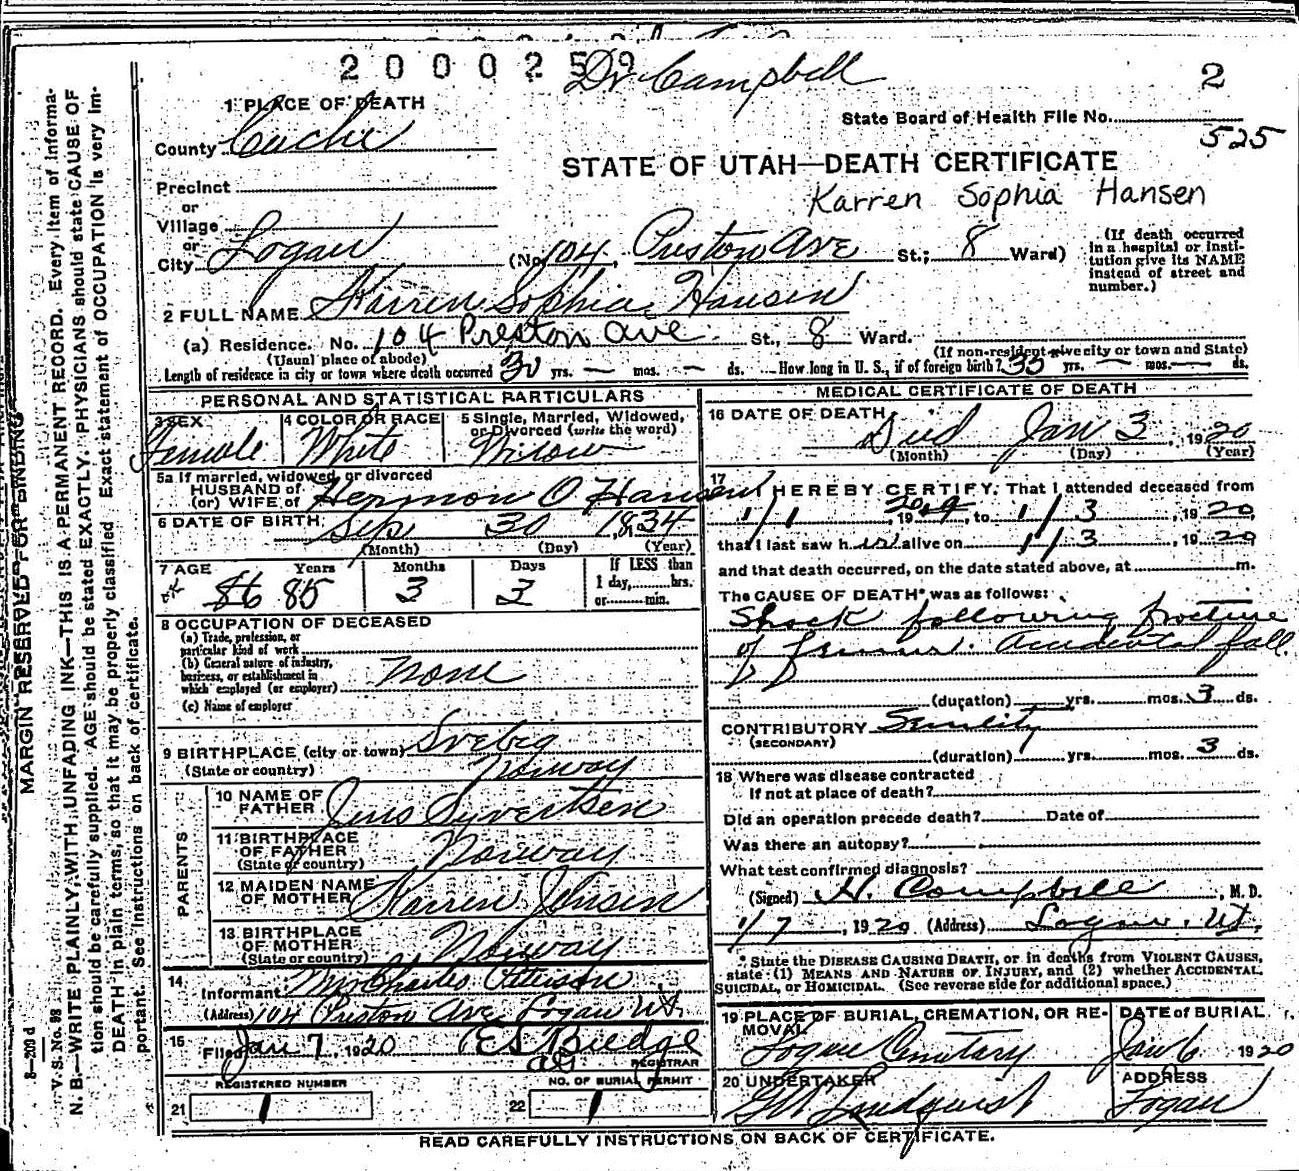 2000259 Dr Campbell 2
1 PLACE OF DEATH
State Board of Health File No.
525
County Cache
STATE OF UTAH—DEATH CERTIFICATE
Karren Sophia Hansen
Precinct
or
Village
or
City Logan (No. 104, Preston Ave St.; 8 Ward)
(If death occurred in a hospital or institution give its NAME instead of street and number.)
2 FULL NAME Karren Sophia Hansen
(a) Residence. No. 104 Preston Ave. St., 8 Ward.
(Usual place of abode) (If non-resident give city or town and State)
Length of residence in city or town where death occurred yrs. — mos. — ds. How long in U. S., if of foreign birth? 33 yrs. — mos. — ds.
PERSONAL AND STATISTICAL PARTICULARS
3 SEX Female
4 COLOR OR RACE White
5 Single, Married, Widowed, or Divorced (write the word) Widow
5a If married, widowed, or divorced
HUSBAND of
(or) WIFE of Hermon O Hansen
6 DATE OF BIRTH Sep 30 1834
(Month) (Day) (Year)
7 AGE Years 86 85 Months 3 Days 3
If LESS than 1 day, hrs. or min.
8 OCCUPATION OF DECEASED
(a) Trade, profession, or particular kind of work
(b) General nature of industry, business, or establishment in which employed (or employer) none
(c) Name of employer
9 BIRTHPLACE (city or town)
(State or country) Norway
PARENTS
10 NAME OF FATHER Jens Syvertsen
11 BIRTHPLACE OF FATHER Norway
(State or country)
12 MAIDEN NAME OF MOTHER Karren Jensen
13 BIRTHPLACE OF MOTHER Norway
(State or country)
14 Informant Mrs Charles
(Address) 104 Preston Ave Logan Ut.
15 Filed Jan 7, 1920
REGISTRAR
REGISTERED NUMBER NO. OF BURIAL PERMIT
21 1 22 1
MEDICAL CERTIFICATE OF DEATH
16 DATE OF DEATH
Died Jan 3, 1920
(Month) (Day) (Year)
17 I HEREBY CERTIFY, That I attended deceased from
1/1, 19 , to 1/3, 1920
that I last saw her alive on 1/3, 1920
and that death occurred, on the date stated above, at m.
The CAUSE OF DEATH* was as follows:
Shock following fracture
of femur. Accidental fall.
(duration) yrs. mos. 3 ds.
CONTRIBUTORY Senility
(SECONDARY)
(duration) yrs. mos. 3 ds.
18 Where was disease contracted
If not at place of death?
Did an operation precede death? Date of
Was there an autopsy?
What test confirmed diagnosis?
(Signed) H. Campbell, M. D.
1/7, 1920 (Address) Logan. Ut.
* State the DISEASE CAUSING DEATH, or in deaths from VIOLENT CAUSES,
state (1) MEANS AND NATURE OF INJURY, and (2) whether ACCIDENTAL,
SUICIDAL, or HOMICIDAL. (See reverse side for additional space.)
19 PLACE OF BURIAL, CREMATION, OR REMOVAL Logan Cemetary
DATE of BURIAL Jan 6 1920
20 UNDERTAKER Lindquist
ADDRESS Logan
READ CAREFULLY INSTRUCTIONS ON BACK OF CERTIFICATE.
MARGIN RESERVED FOR BINDING
8—209 d
V. S. No. 98
N. B.—WRITE PLAINLY, WITH UNFADING INK—THIS IS A PERMANENT RECORD. Every item of informa-
tion should be carefully supplied. AGE should be stated EXACTLY. PHYSICIANS should state CAUSE OF
DEATH in plain terms, so that it may be properly classified. Exact statement of OCCUPATION is very im-
portant. See instructions on back of certificate.